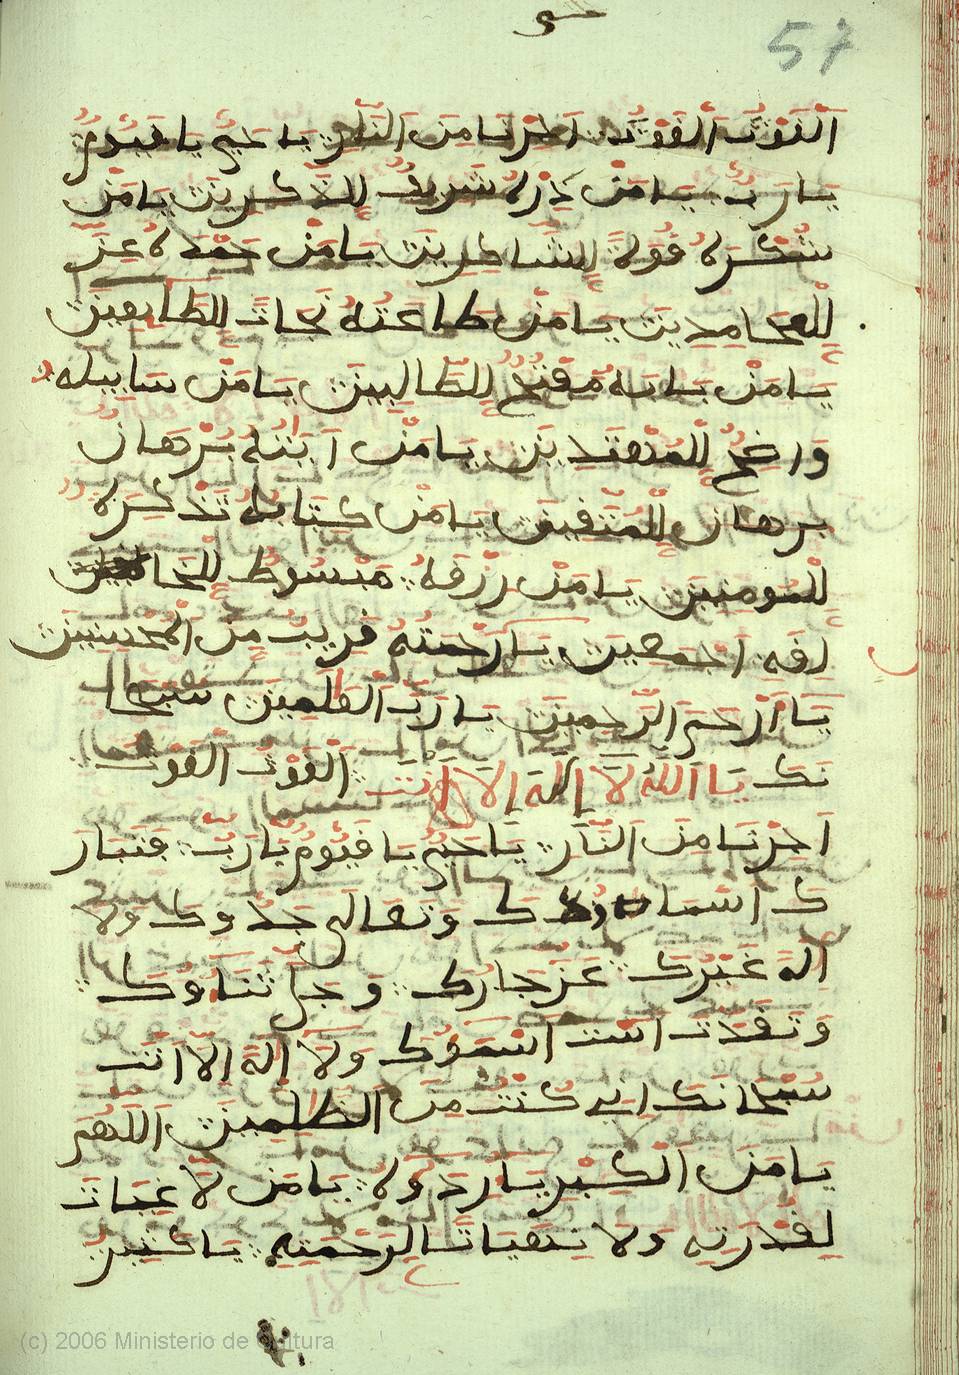 57
اَلْغَوْثَ اَلْغَوْثَ اجرنا من النار يا حي يا قيوم
يا رب يا من ذكره شريف للذكرين يا من
شكره فوة للشاكرين يا من حمده عز
للحامدين يا من طاعته نجات للطايعين
يا من بابه مفتح للطالبين يا من سابيله
واضح للمهتدين يا من ايته برهان
برهان للمتفين يا من كتابه تذكرة
للمومنين يا من رزفه مبسوط
اجمعين يا رحمته فريب من المحسنين
يا ارحم الرحمين يا رب العلمين سبحا
نك يا الله لا إله إلا أنت الغوث الغوث
اجرنا من النار يا حي يا قيوم يا رب فتبار
ك اسما ك وتعالى جدوك ولا
اله غيرك عز جارك وجل ثناوك
وتفدت است اسموك ولا إله الا انت
سبحانك اني كنت من الظلمين اللهم
يا من الكبرياء رد وه يا من لا غيات
لفدرته ولا نتهيات لرحمته يا كثير
(c) 2006 Ministerio de Cultura